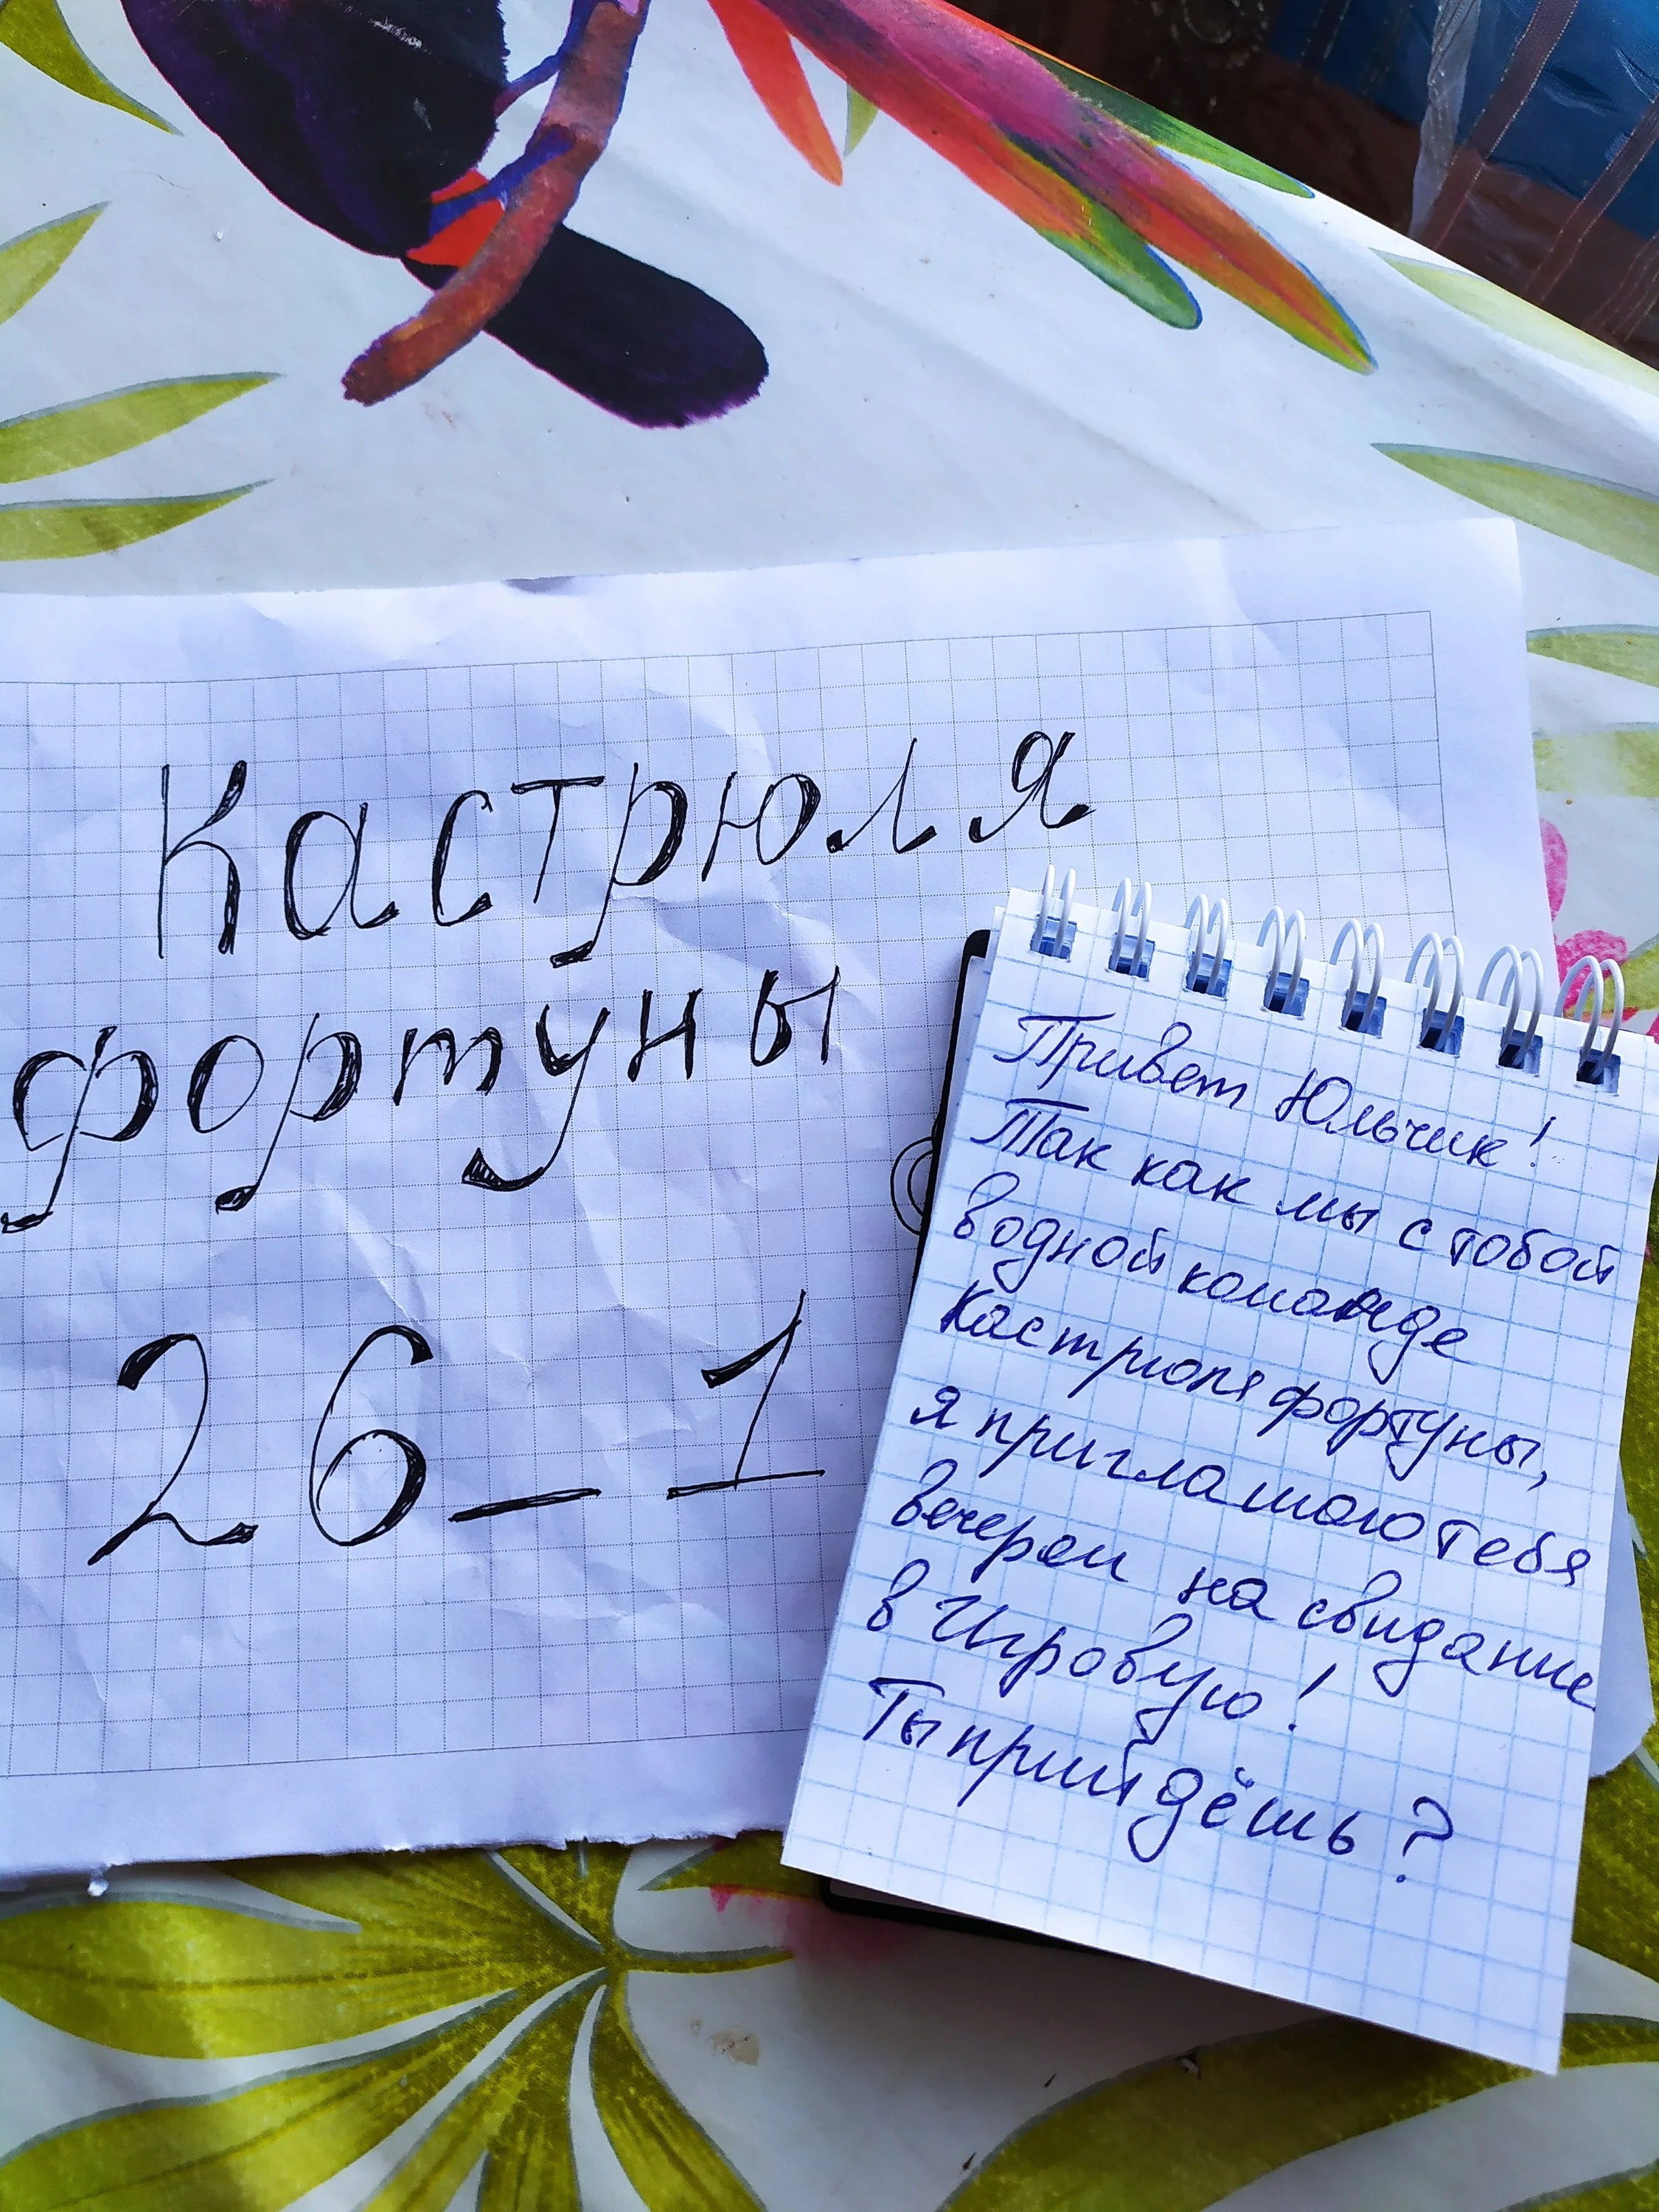 Кастрюля
фортуны
26_1
Привет Юльчик!
Так как мы с тобой
в одной команде
Кастрюля фортуны,
я приглашаю тебя
вечером на свидание
в Игровую!
Ты прийдёшь?